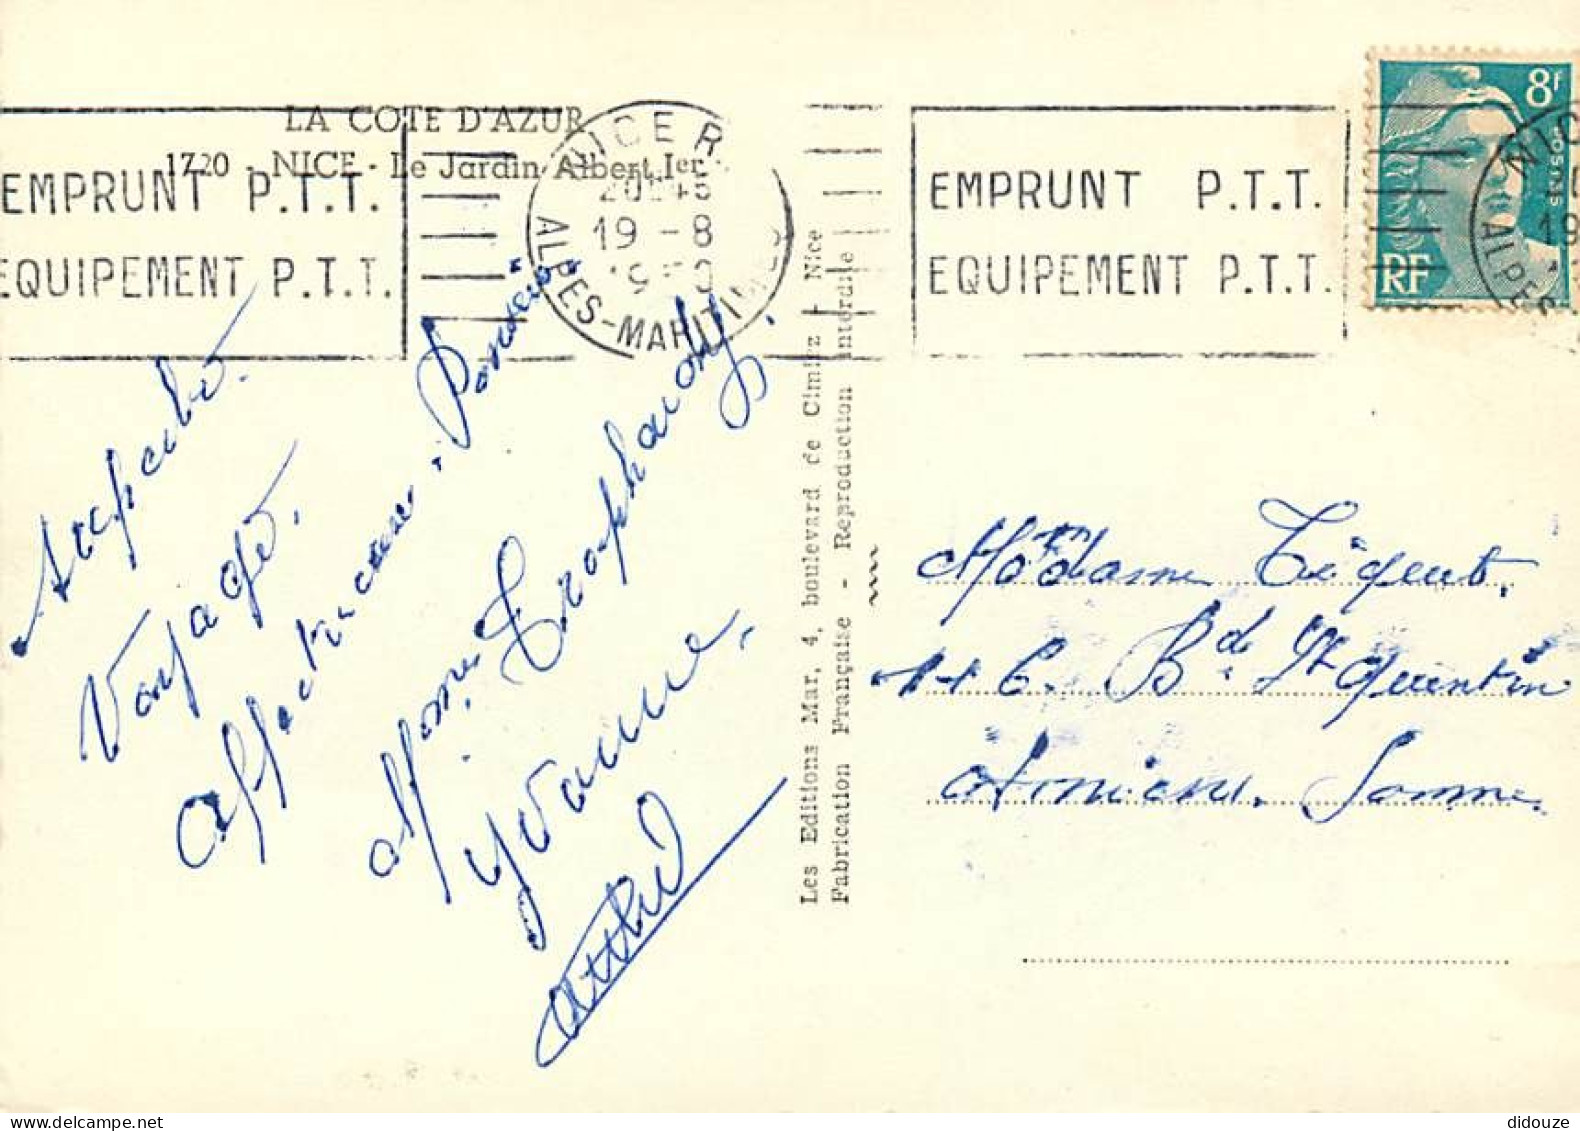 LA COTE D'AZUR
1720 - NICE - Le Jardin Albert Ier
EMPRUNT P.T.T.
EQUIPEMENT P.T.T.
NICE R
19 - 8
ALPES-MARITIMES
EMPRUNT P.T.T.
EQUIPEMENT P.T.T.
8f
POSTES
RF
NIC
19
ALPES
Superbe
Voyage.
Affectueuse Pensée
Yvonne,
Les Editions Mar, 4, boulevard de Cimiez - Nice
Fabrication Française - Reproduction interdite
Madame
Bd St Quentin
Amiens. Somme.
didouze